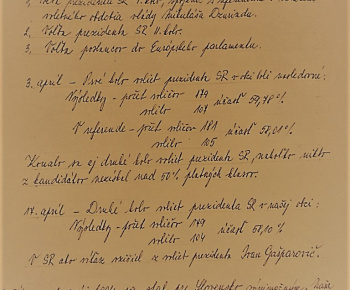 volebného obdobia vlády Mikuláša Dzurindu.
2. Voľba prezidenta SR II. kolo.
3. Voľba poslancov do Európskeho parlamentu.
3. apríl - Prvé kolo volieb prezidenta SR v obci boli nasledovné:
Výsledky - počet voličov 179
volilo 107 účasť 59,78 %
V referende - počet voličov 181 účasť 58,01 %
volilo 105
Konalo sa aj druhé kolo volieb prezidenta SR, nakoľko nikto
z kandidátov nezískal nad 50% platných hlasov.
17. apríl - Druhé kolo volieb prezidenta SR v našej obci:
Výsledky - počet voličov 179 účasť 58,10 %
volilo 104
V SR ako víťaz vzišiel z volieb prezidenta Ivan Gašparovič.